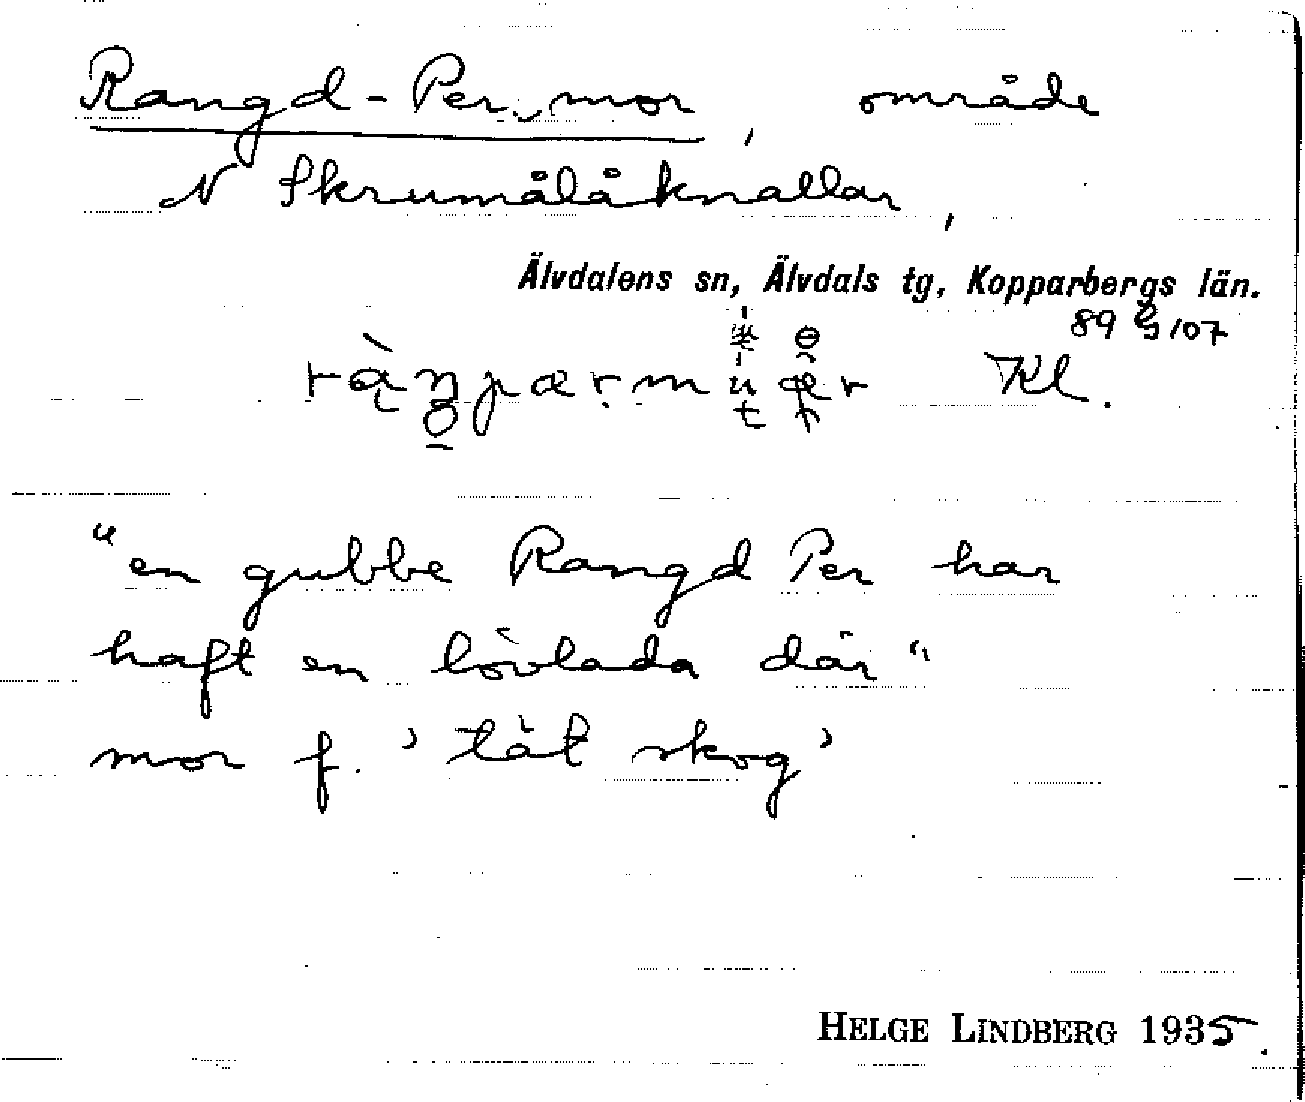 Rangd-Per‿mor, område
N Skrumålåknallar,
Älvdalens sn, Älvdals tg, Kopparbergs län.
89 107
Kl.
"en gubbe Rangd Per har
haft en lövlada där"
mor f. 'tät skog'
HELGE LINDBERG 1935.